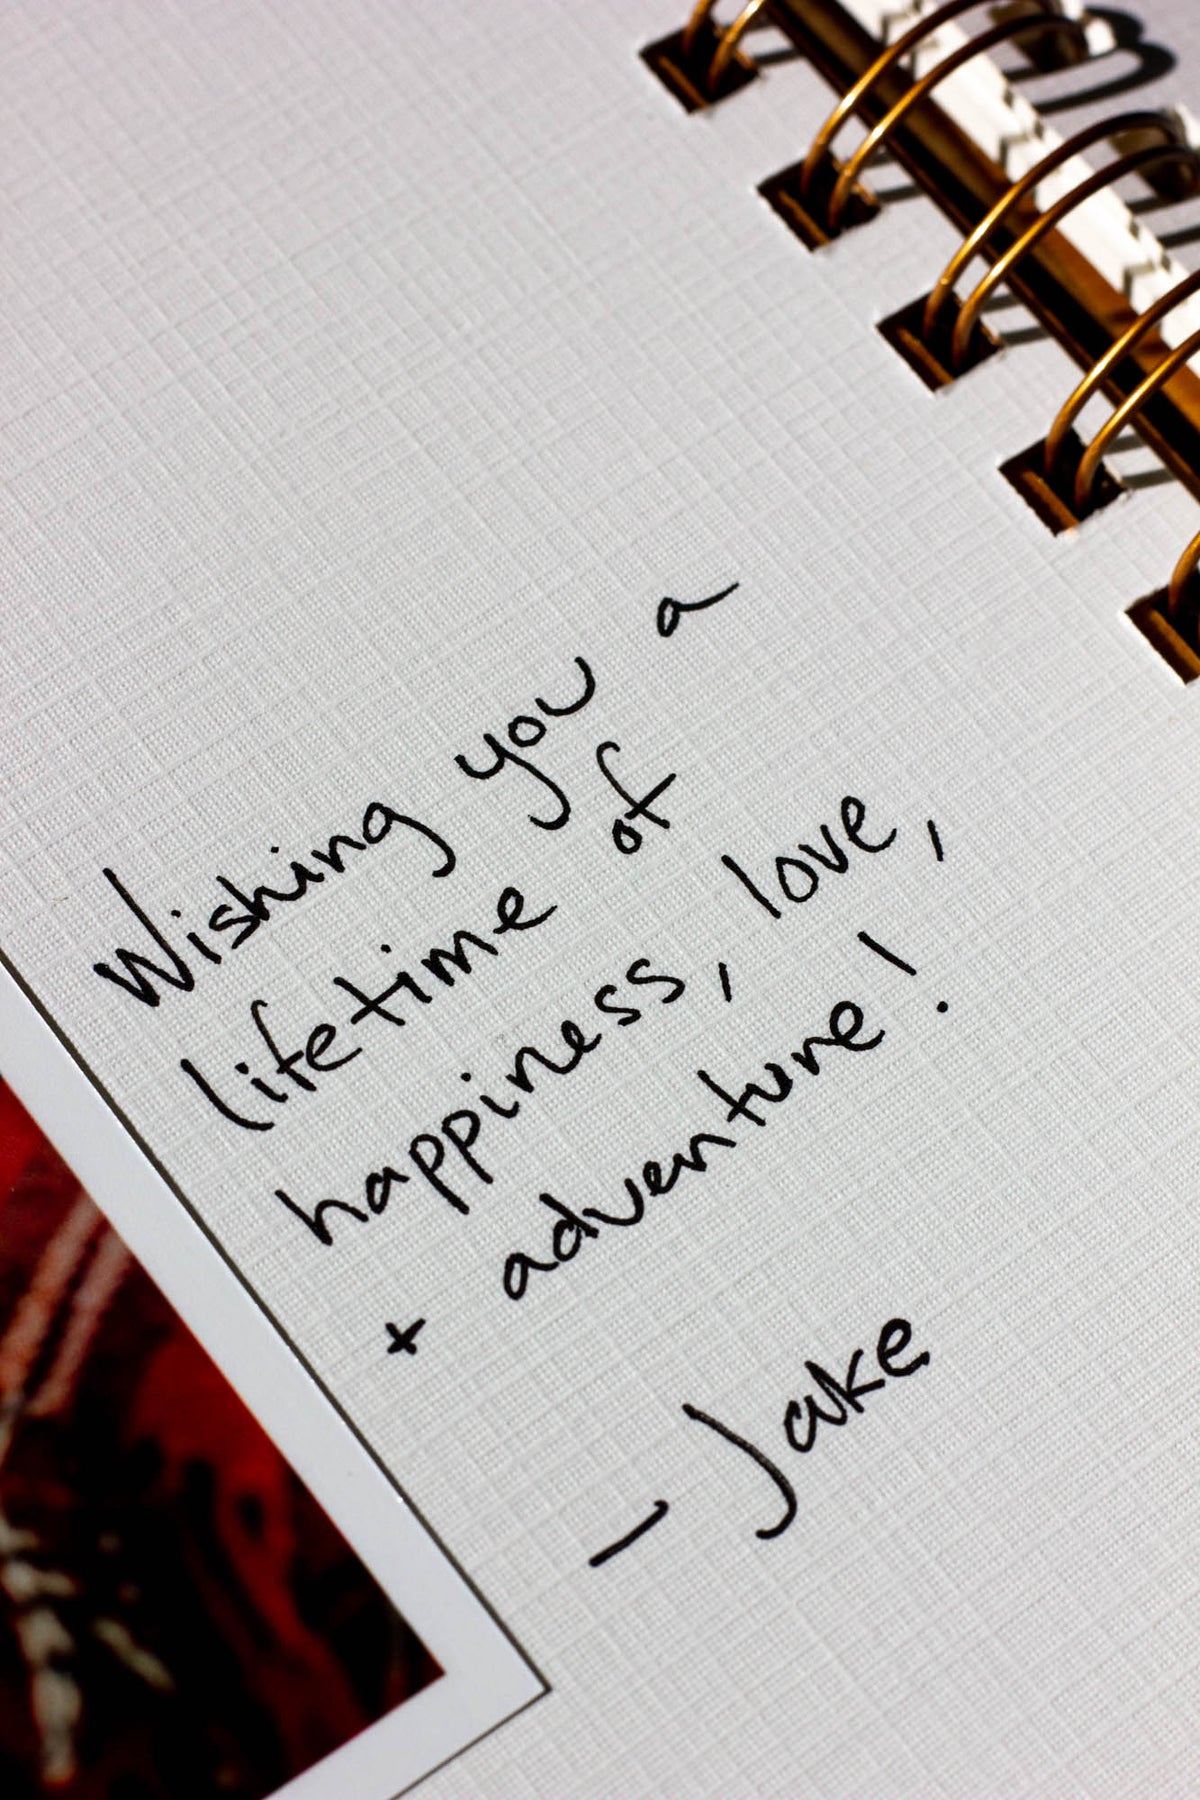 Wishing you a
lifetime of
happiness, love,
+ adventure!
- Jake